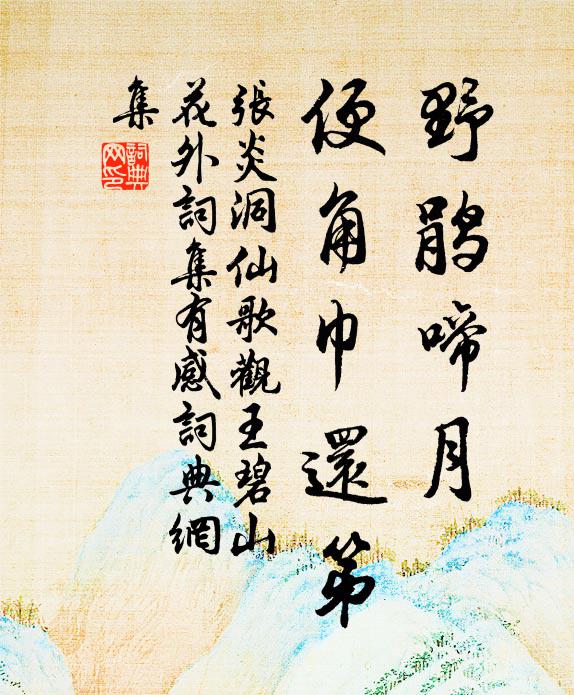 野鵑啼月
便角巾還第
張炎洞仙歌觀王碧山
花外詞集有感詞典網
集
詞典網印